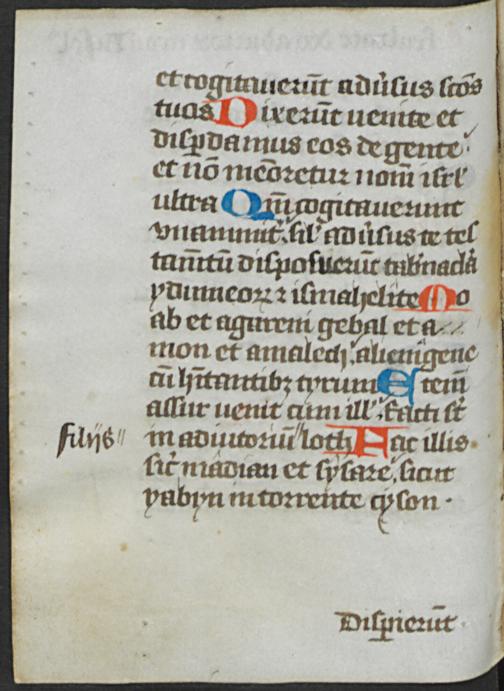 et cogitauerūt adūsus scōs
tuos Dixerūt uenite et
disꝑdamus eos de gente
et nō meōretur nom̄ isrł
ultra Qm̄ cogitauerunt
vnanimit̉ sił adūsus te tes
tam̄tū disposuerūt tab̉nacła
ydumeoꝝ ⁊ ismahelite Mo
ab et agareni gebal et a
mon et amalech alienigene
cū hītantibꝫ tyrum Etem̄
assur uenit cum ill̉ facti st̄
filijs
in adiutoriū loth Fac illis
sic̄ madian et sysare sicut
yabyn in torrente cyson
Disꝑierūt